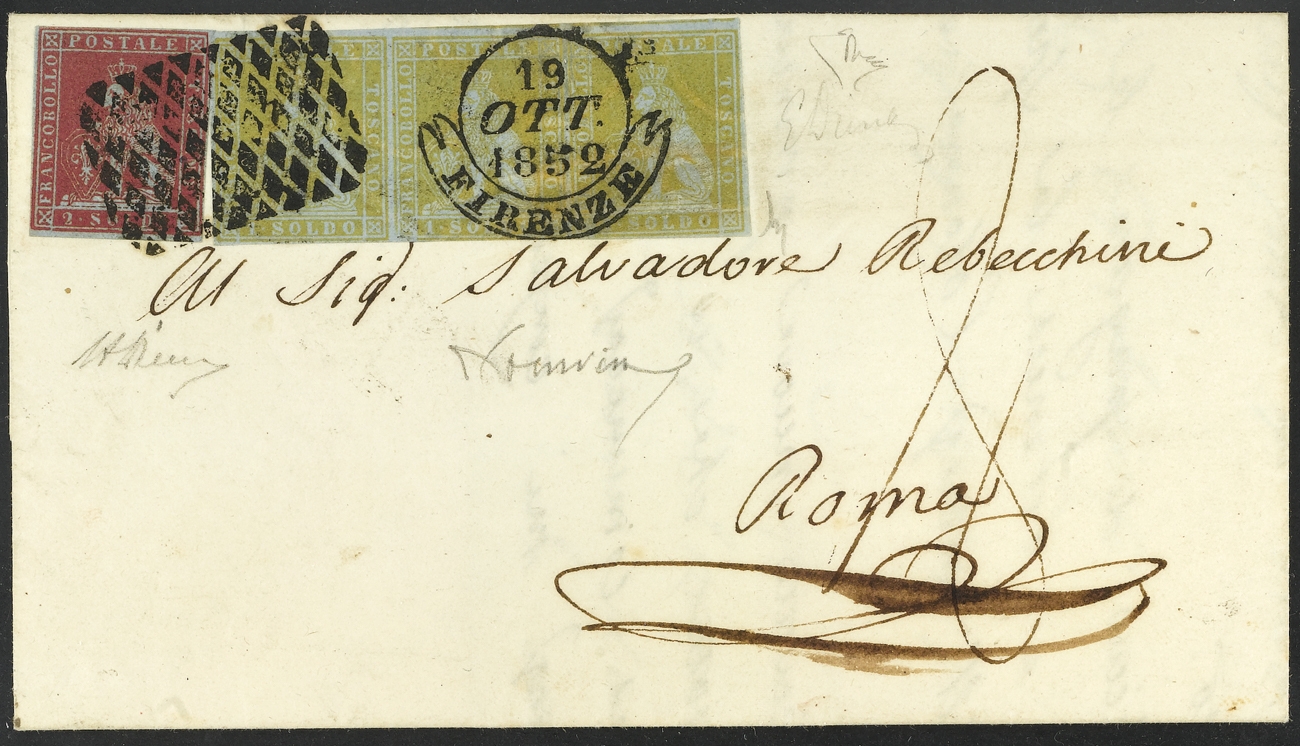 POSTALE
FRANCOBOLLO
2 SOLDI
POSTALE
TOSCANO
SOLDO
FRANCOBOLLO
POSTALE
1 SOLDO
POSTALE
TOSCANO
SOLDO
19
OTT.
1852
FIRENZE
Al Sig: Salvadore Rebecchini
Roma